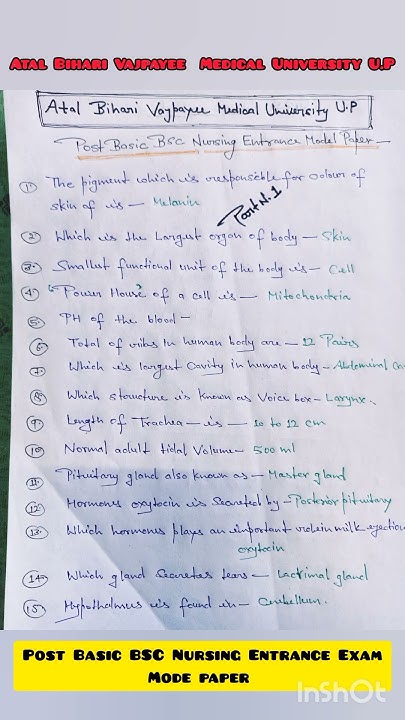 Atal Bihari Vajpayee Medical University U.P
Atal Bihari Vajpayee Medical University U.P
Post Basic BSC Nursing Entrance Model Paper
Part N.1
1. The pigment which is responsible for colour of
skin of is - Melanin
2. Which is the Largest organ of body - Skin
3. Smallest functional unit of the body is - Cell
4. "Power House" of a cell is - Mitochondria
5. PH of the blood -
6. Total of ribs In human body are - 12 Pairs
7. Which is largest Cavity in human body - Abdominal Ca
8. Which structure is known as Voice box - Larynx.
9. Length of Trachea - is - 10 to 12 cm
10. Normal adult tidal Volume - 500 ml
11. Pituitary gland also known as - Master gland
12. Hormones oxytocin is Secreted by - Posterior pituitary
13. Which hormones plays an important role in milk ejection
oxytocin
14. Which gland Secretes tears - Lacrimal gland
15. Hypothalmus is found in - Cerebellum.
Post Basic BSC Nursing Entrance Exam
Mode paper
InShOt